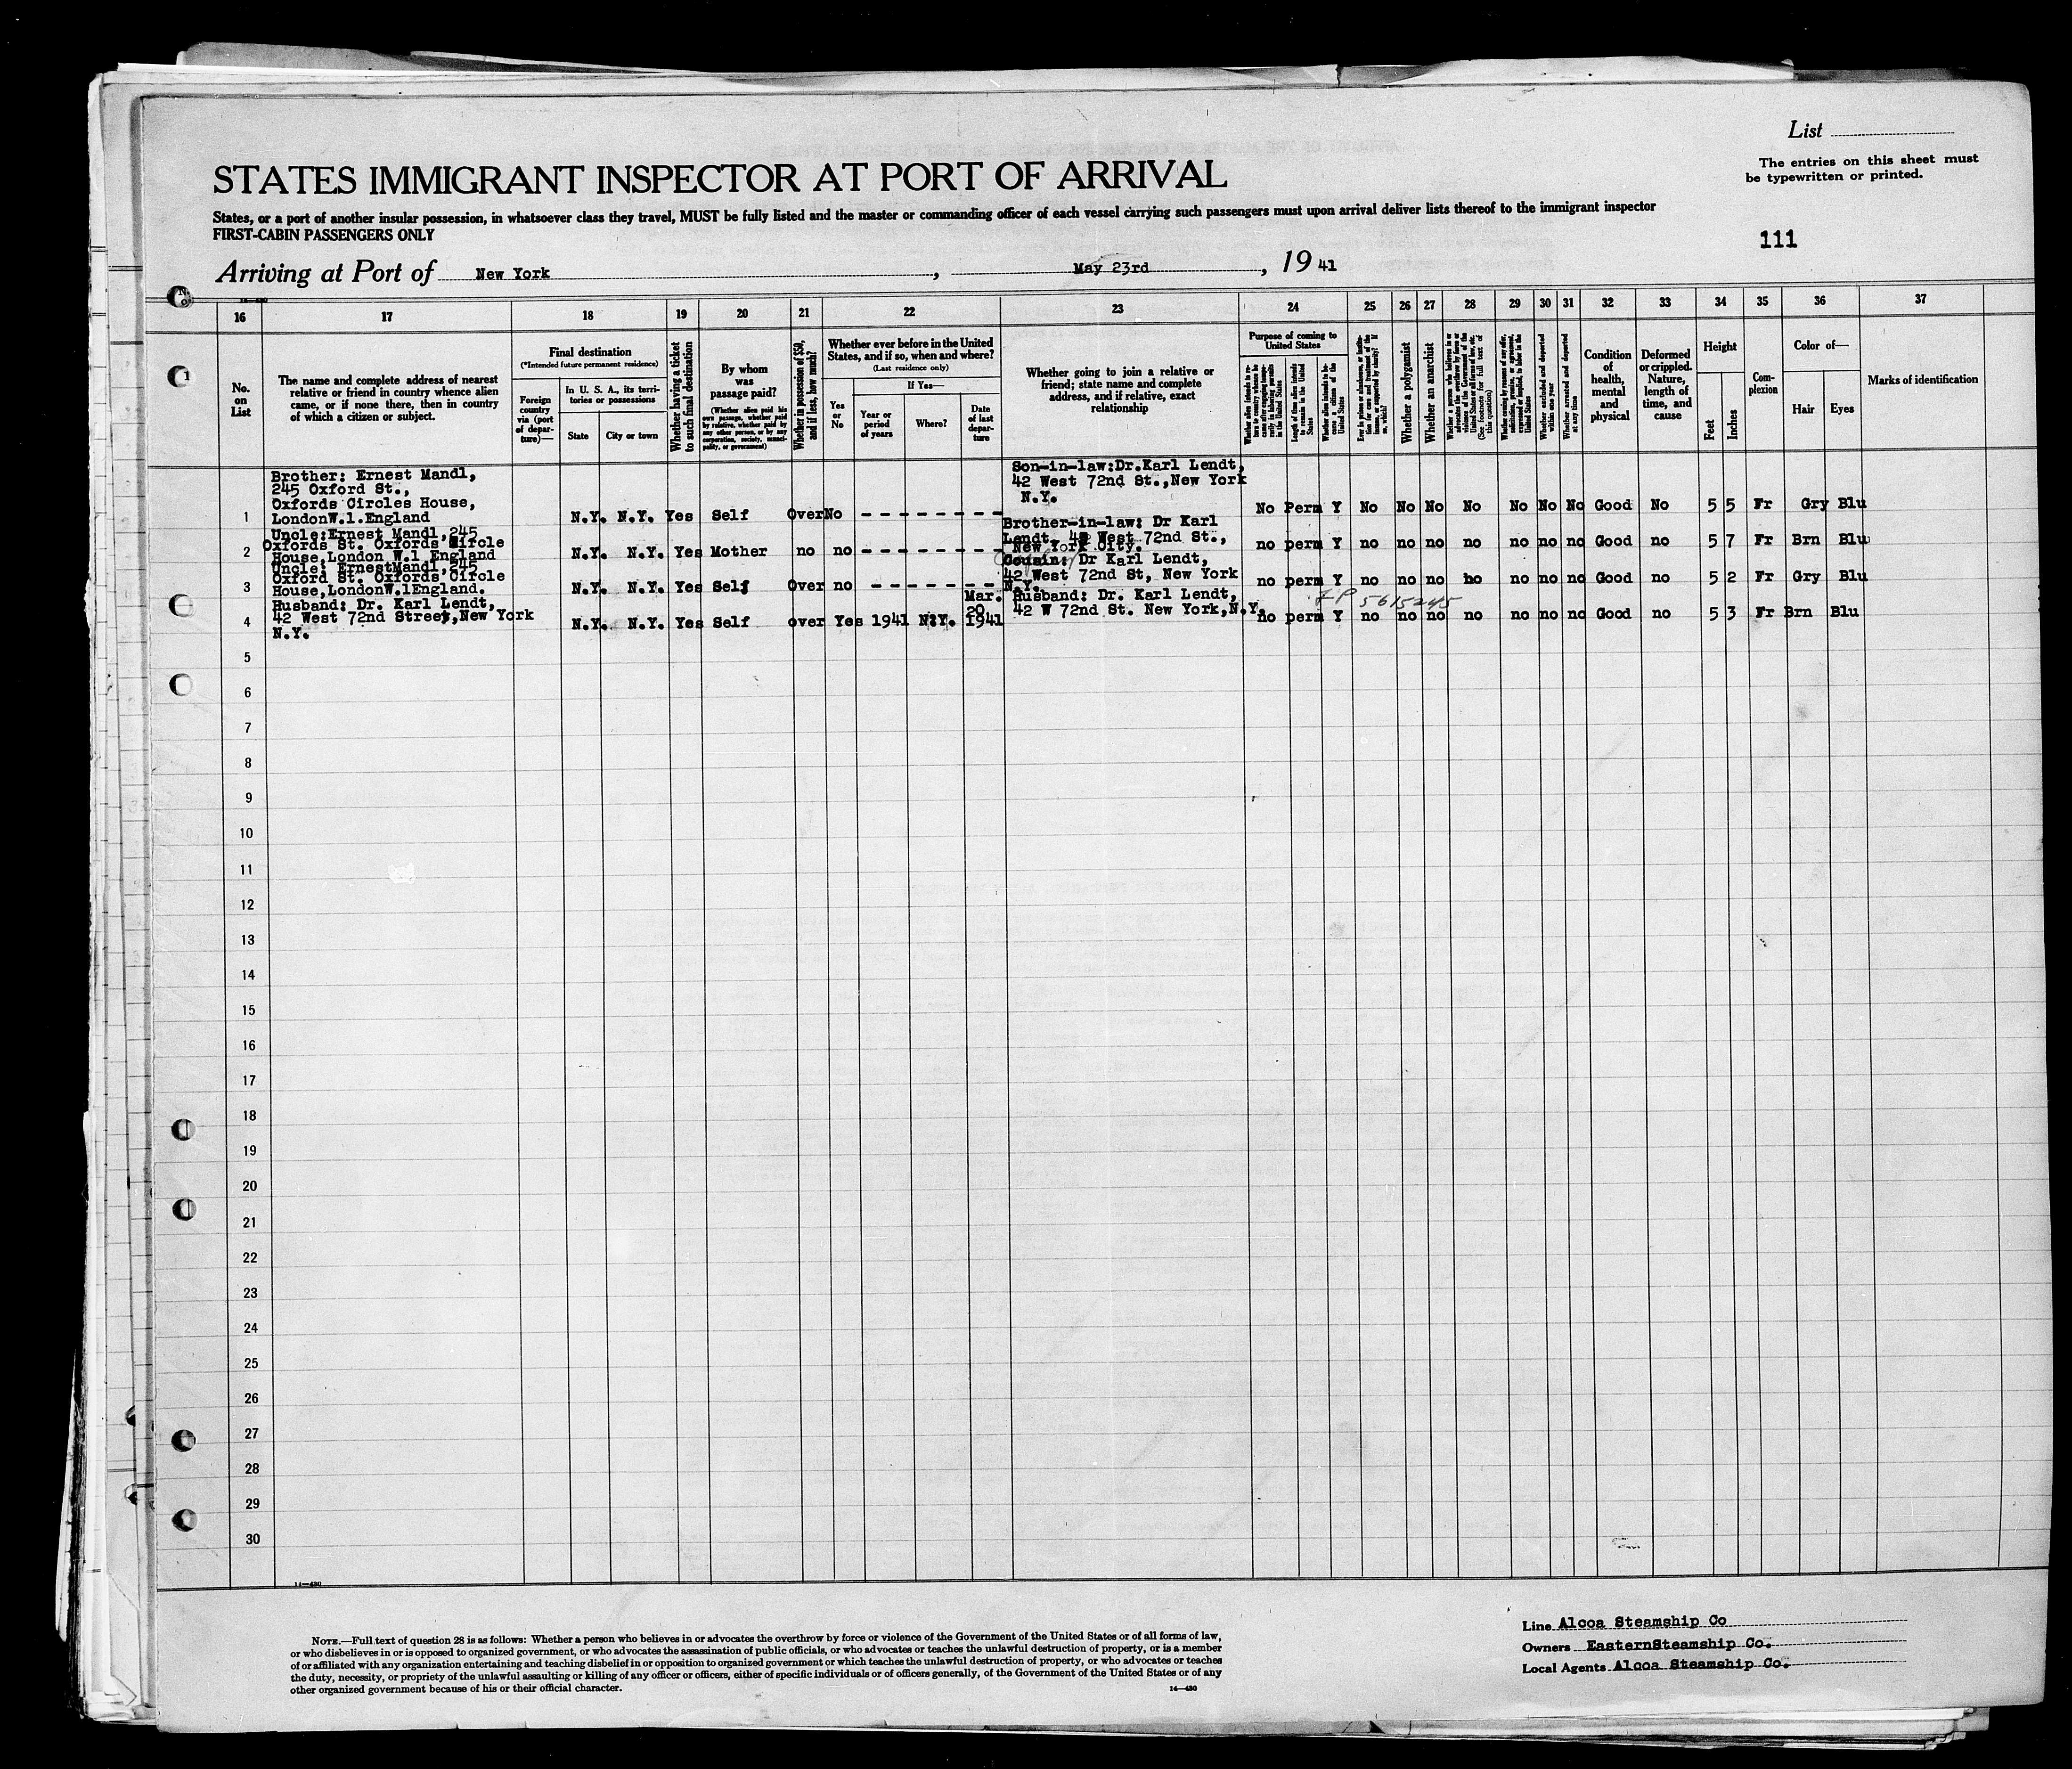 List
The entries on this sheet must
be typewritten or printed.
STATES IMMIGRANT INSPECTOR AT PORT OF ARRIVAL
States, or a port of another insular possession, in whatsoever class they travel, MUST be fully listed and the master or commanding officer of each vessel carrying such passengers must upon arrival deliver lists thereof to the immigrant inspector
FIRST-CABIN PASSENGERS ONLY
111
Arriving at Port of New York, May 23rd, 19 41
16 17 18 19 20 21 22 23 24 25 26 27 28 29 30 31 32 33 34 35 36 37
No.
on
List
The name and complete address of nearest
relative or friend in country whence alien
came, or if none there, then in country
of which a citizen or subject.
Final destination
(*Intended future permanent residence)
Foreign
country
via (port
of depar-
ture)—
In U. S. A., its terri-
tories or possessions
State
City or town
Whether having a ticket
to such final destination
By whom
was
passage paid?
(Whether alien paid his
own passage, whether paid
by relative, whether paid by
any other person, or by any
corporation, society, munici-
pality, or government)
Whether in possession of $50,
and if less, how much?
Whether ever before in the United
States, and if so, when and where?
(Last residence only)
Yes
or
No
If Yes—
Year or
period
of years
Where?
Date
of last
depar-
ture
Whether going to join a relative or
friend; state name and complete
address, and if relative, exact
relationship
Purpose of coming to
United States
Whether alien intends to re-
turn to country whence he
came after engaging tempo-
rarily in laboring pursuits
in the United States
Length of time alien intends
to remain in the United
States
Whether alien intends to be-
come a citizen of the
United States
Ever in prison or almshouse, or institu-
tion for care and treatment of the
insane, or supported by charity? If
so, which?
Whether a polygamist
Whether an anarchist
Whether a person who believes in or
advocates the overthrow by force or
violence of the Government of the
United States or all forms of law, etc.
(See footnote for full text of
this question)
Whether coming by reason of any offer,
solicitation, promise, or agreement,
expressed or implied, to labor in the
United States
Whether excluded and deported
within one year
Whether arrested and deported
at any time
Condition
of
health,
mental
and
physical
Deformed
or crippled.
Nature,
length of
time, and
cause
Height
Feet
Inches
Com-
plexion
Color of—
Hair
Eyes
Marks of identification
Brother: Ernest Mandl,
245 Oxford St.,
Oxfords Circles House,
LondonW.1.England
1 N.Y. N.Y. Yes Self Over No - - - - - - - - -
Son-in-law:Dr.Karl Lendt,
42 West 72nd St.,New York
N.Y.
No Perm Y No No No No No No No Good No 5 5 Fr Gry Blu
Uncle:Ernest Mandl,245
Oxfords St. Oxfords Circle
House,London W.1 England
2 N.Y. N.Y. Yes Mother no no - - - - - - - - -
Brother-in-law: Dr Karl
Lendt, 42 West 72nd St.,
New York City.
no perm Y no no no no no no no Good no 5 7 Fr Brn Blu
Uncle: ErnestMandl,245
Oxford St. Oxfords Circle
House,LondonW.1England.
3 N.Y. N.Y. Yes Self Over no - - - - - - - -
Cousin: Dr Karl Lendt,
42 West 72nd St, New York
N.Y.
no perm Y no no no no no no no Good no 5 2 Fr Gry Blu
Husband: Dr. Karl Lendt,
42 West 72nd Street,New York
N.Y.
4 N.Y. N.Y. Yes Self over Yes 1941 N.Y. Mar.
20
1941
Husband: Dr. Karl Lendt,
42 W 72nd St. New York,N.Y.
5615245
no perm Y no no no no no no no Good no 5 3 Fr Brn Blu
5
6
7
8
9
10
11
12
13
14
15
16
17
18
19
20
21
22
23
24
25
26
27
28
29
30
14—430
NOTE.—Full text of question 28 is as follows: Whether a person who believes in or advocates the overthrow by force or violence of the Government of the United States or of all forms of law,
or who disbelieves in or is opposed to organized government, or who advocates the assassination of public officials, or who advocates or teaches the unlawful destruction of property, or is a member
of or affiliated with any organization entertaining and teaching disbelief in or opposition to organized government or which teaches the unlawful destruction of property, or who advocates or teaches
the duty, necessity, or propriety of the unlawful assaulting or killing of any officer or officers, either of specific individuals or of officers generally, of the Government of the United States or of any
other organized government because of his or their official character.
14—430
Line Alcoa Steamship Co
Owners EasternSteamship Co.
Local Agents Alcoa Steamship Co.